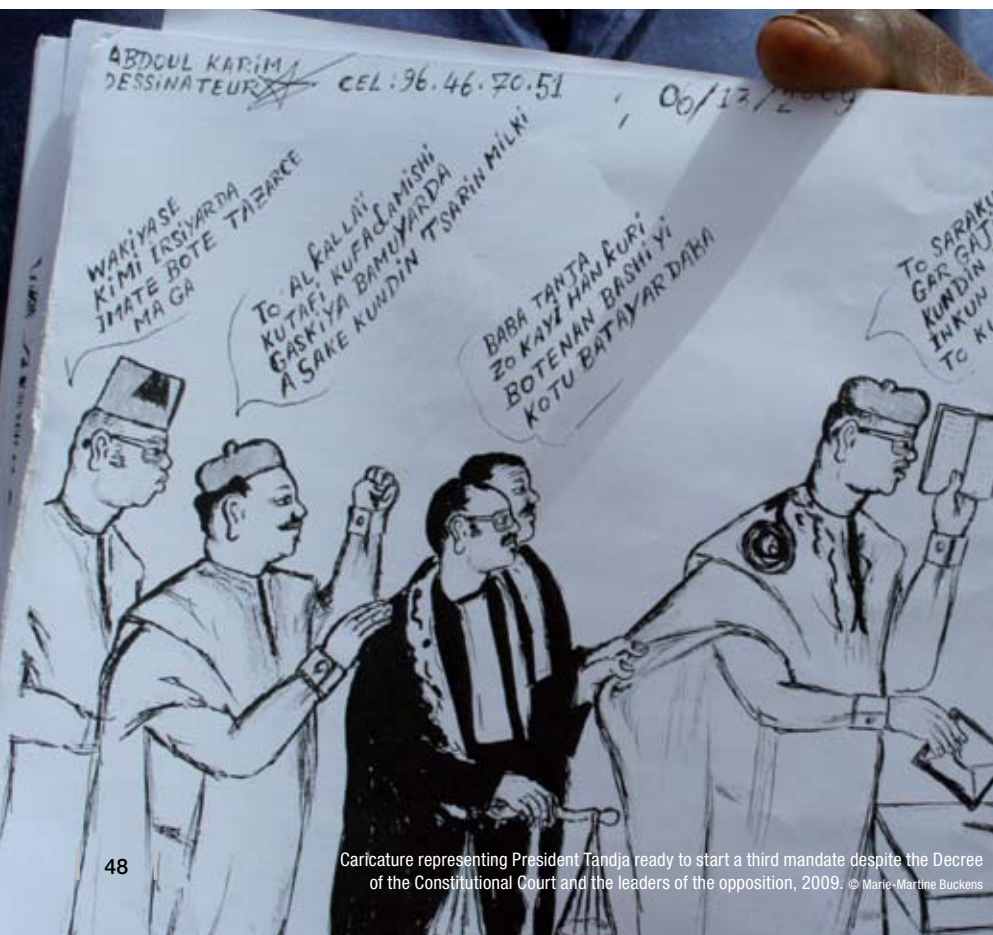 ABDOUL KARIM
DESSINATEUR CEL: 96.46.70.51
06/13/2009
WAKIYASE
KIMI IRSIYARDA
IMATE BOTE TAZARCE
MA GA
TO ALKALLAÏ
KUTAFI KUFADAMISHI
GASKIYA BAMUYARDA
A SAKE KUNDIN TSARIN MILKI
BABA TANJA
ZO KAYI HANKURI
BOTENAN BASHI YI
KOTU BATAYARDABA
TO SARAKU
GAR GAJ
KUNDIN
INKUN
TO
48
Caricature representing President Tandja ready to start a third mandate despite the Decree
of the Constitutional Court and the leaders of the opposition, 2009. © Marie-Martine Buckens